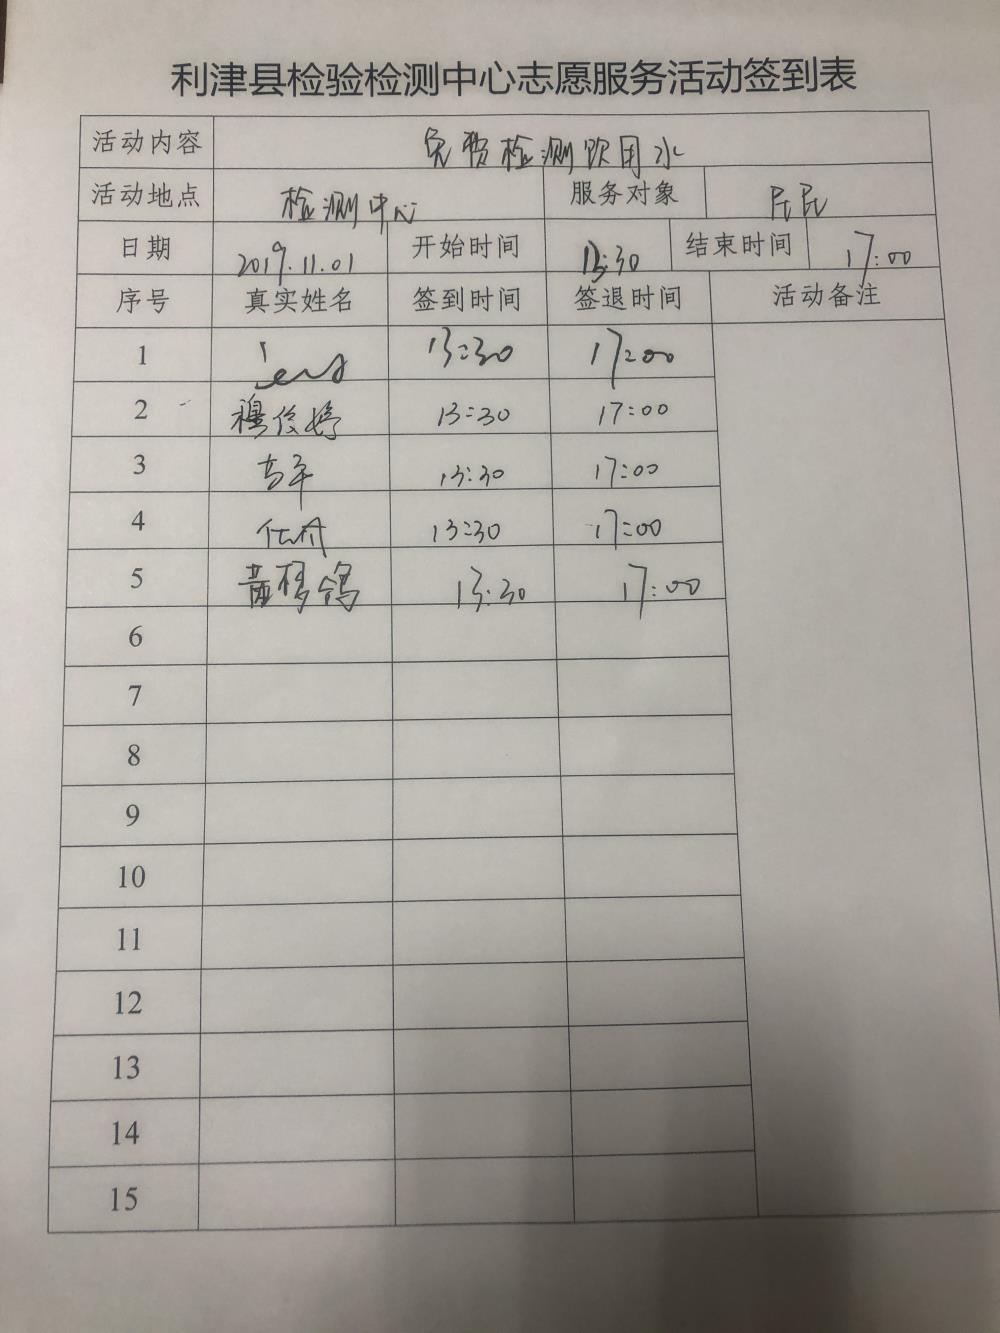 利津县检验检测中心志愿服务活动签到表
活动内容 免费检测饮用水
活动地点 检测中心 服务对象 居民
日期 2019.11.01 开始时间 13:30 结束时间 17:00
序号 真实姓名 签到时间 签退时间 活动备注
1 13:30 17:00
2 穆俊婷 13:30 17:00
3 13:30 17:00
4 13:30 17:00
5 13:30 17:00
6
7
8
9
10
11
12
13
14
15